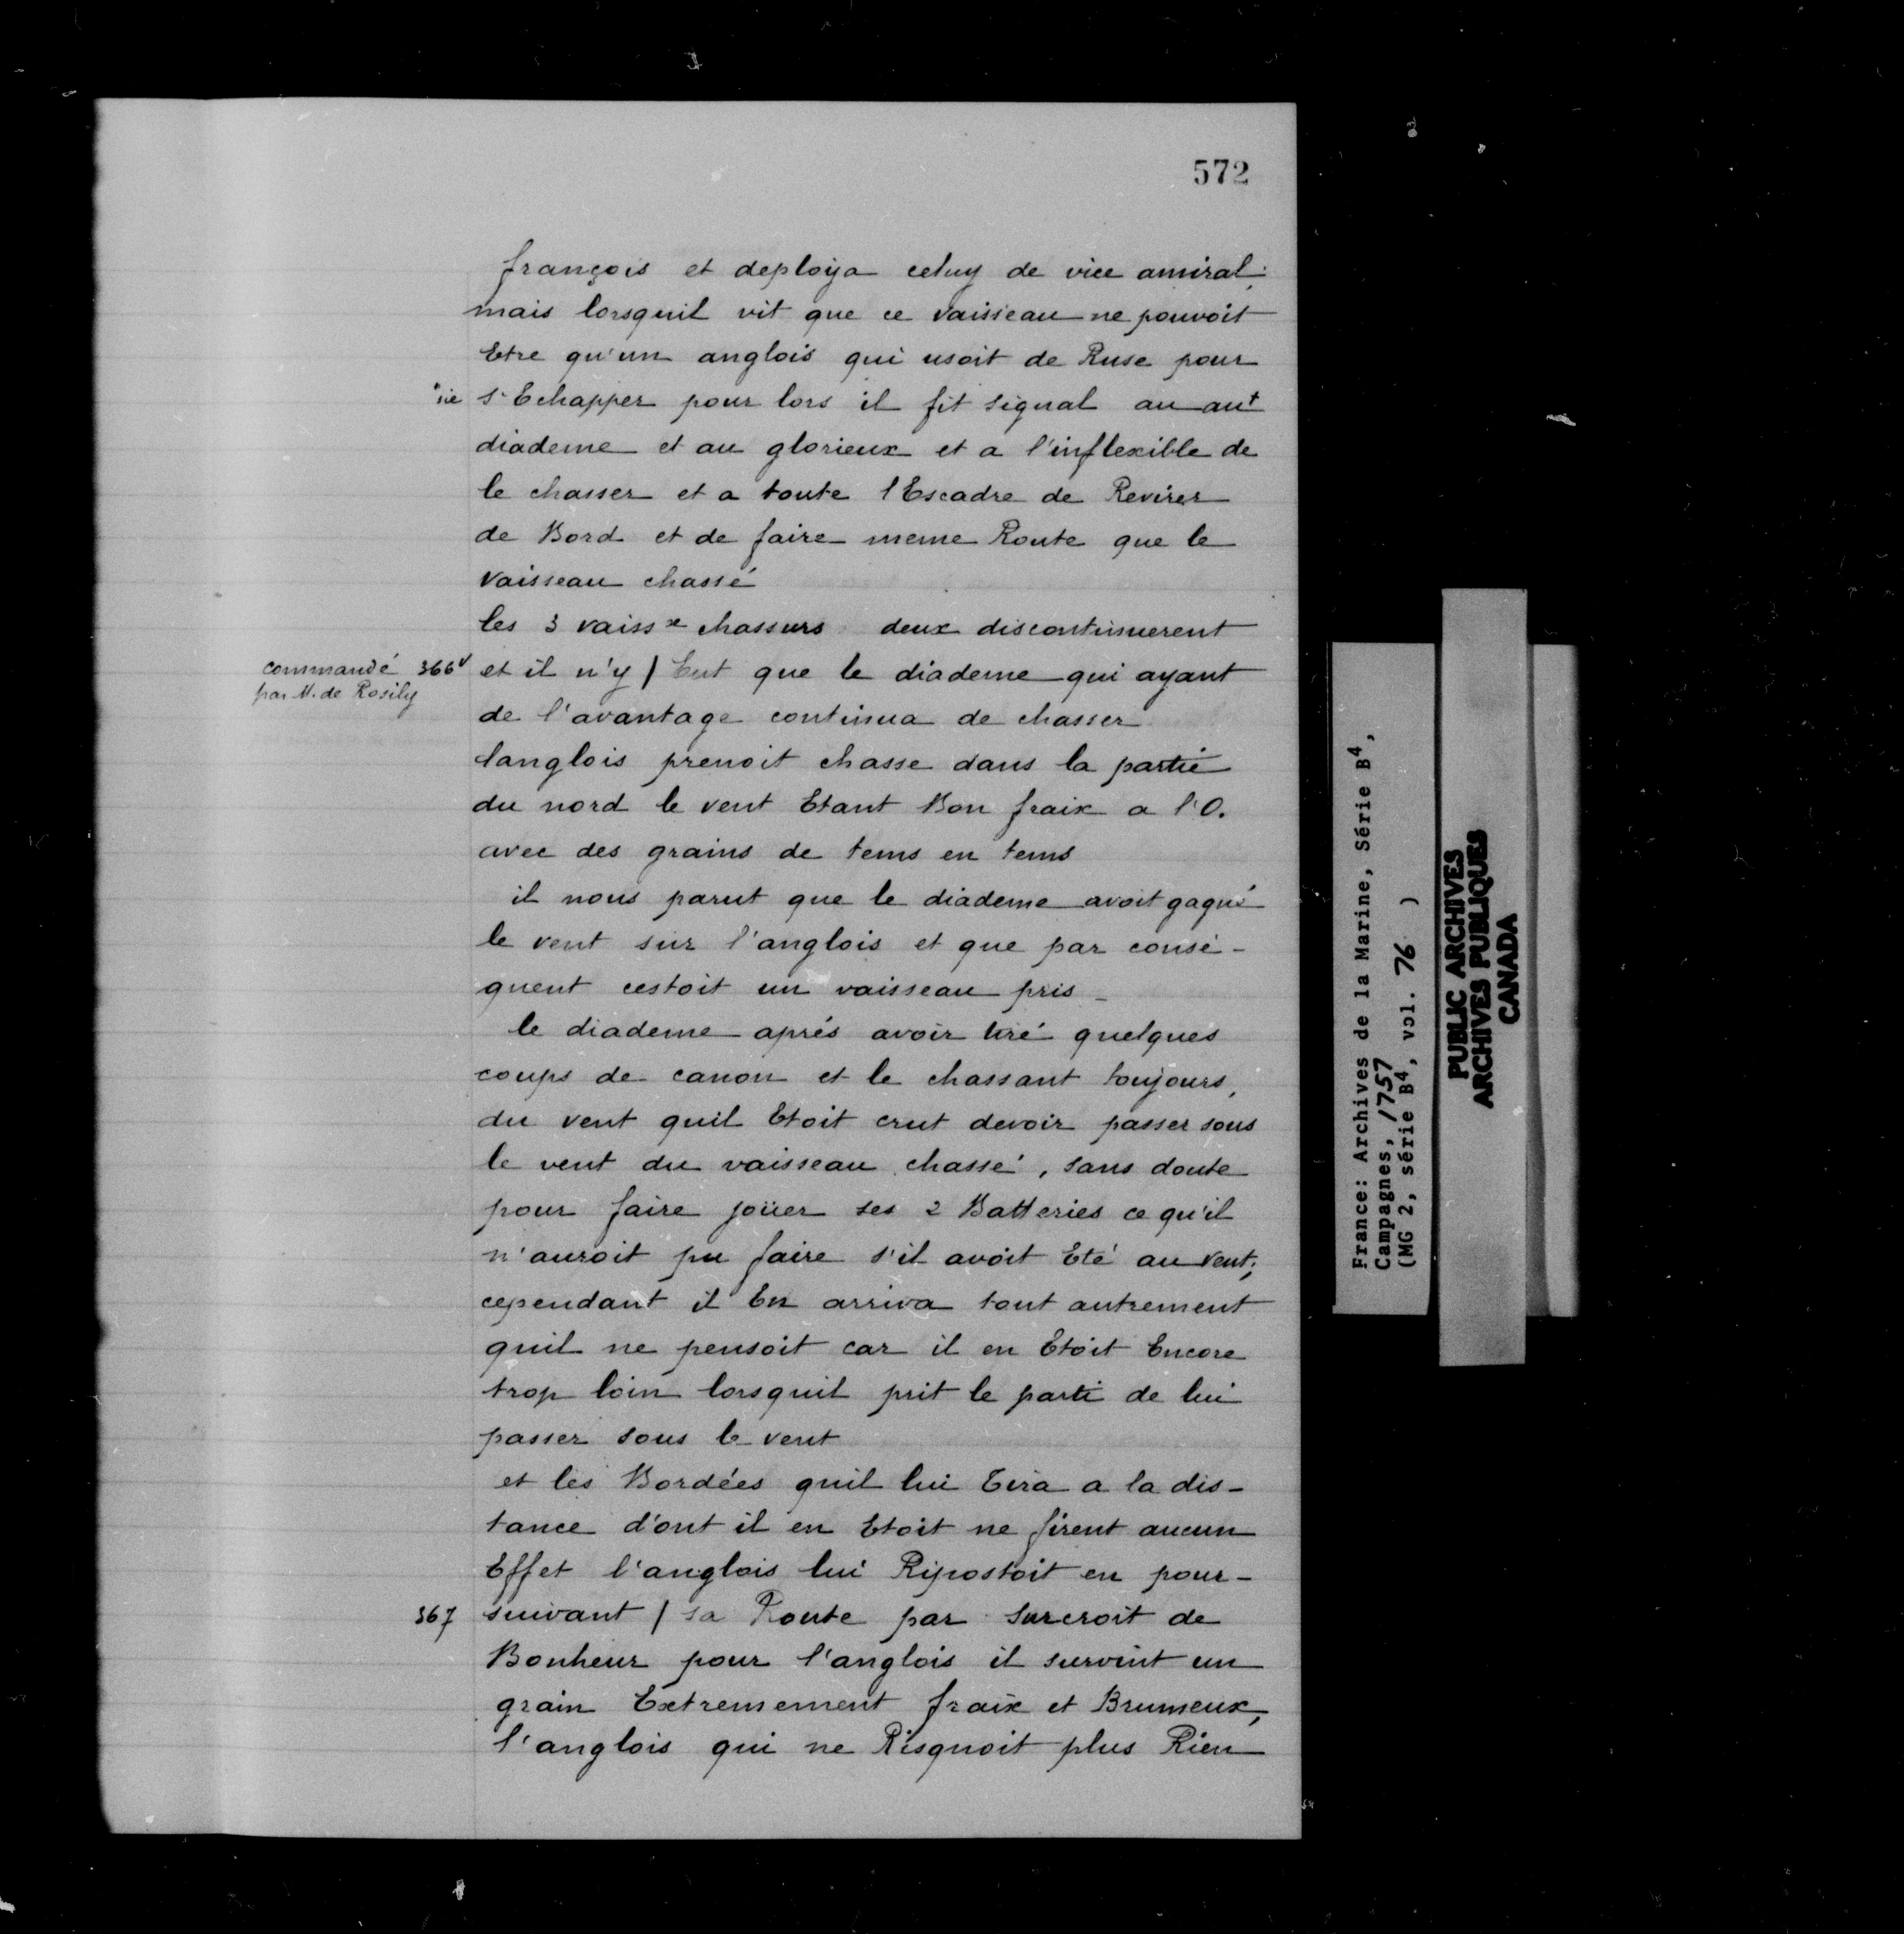 572
françois et deploya celuy de vice amiral;
mais lorsquil vit que ce vaisseau ne pouvoit
Etre qu'un anglois qui usoit de Ruse pour
sic s'Echapper pour lors il fit signal au aut
diademe et au glorieux et a l'inflexible de
le chasser et a toute l'Escadre de Revirer
de Bord et de faire meme Route que le
vaisseau chassé
les 3 vaissx chasseurs deux discontinuerent
commandé 366v et il n'y / Eut que le diademe qui ayant
par M. de Rosily
de l'avantage continua de chasser
langlois prenoit chasse dans la partie
du nord le vent Etant Bon fraix a l'O.
avec des grains de tems en tems
il nous parut que le diademe avoit gagné
le vent sur l'anglois et que par consé-
quent cestoit un vaisseau pris -
le diademe aprés avoir tiré quelques
coups de canon et le chassant toujours,
du vent quil Etoit crut devoir passer sous
le vent du vaisseau chassé, sans doute
pour faire joüer ses 2 Batteries ce qu'il
n'auroit pu faire s'il avoit Eté au vent;
cependant il En arriva tout autrement
quil ne pensoit car il en Etoit Encore
trop loin lorsquil prit le parti de lui
passer sous le vent
et les Bordées quil lui Tira a la dis-
tance d'ont il en Etoit ne firent aucun
Effet l'anglois lui Ripostoit en pour-
367 suivant / sa Route par surcroit de
Bonheur pour l'anglois il survint un
grain Extremement fraix et Brumeux,
l'anglois qui ne Risquoit plus Rien
France: Archives de la Marine, Série B4,
Campagnes, 1757
(MG 2, série B4, vol. 76 )
PUBLIC ARCHIVES
ARCHIVES PUBLIQUES
CANADA